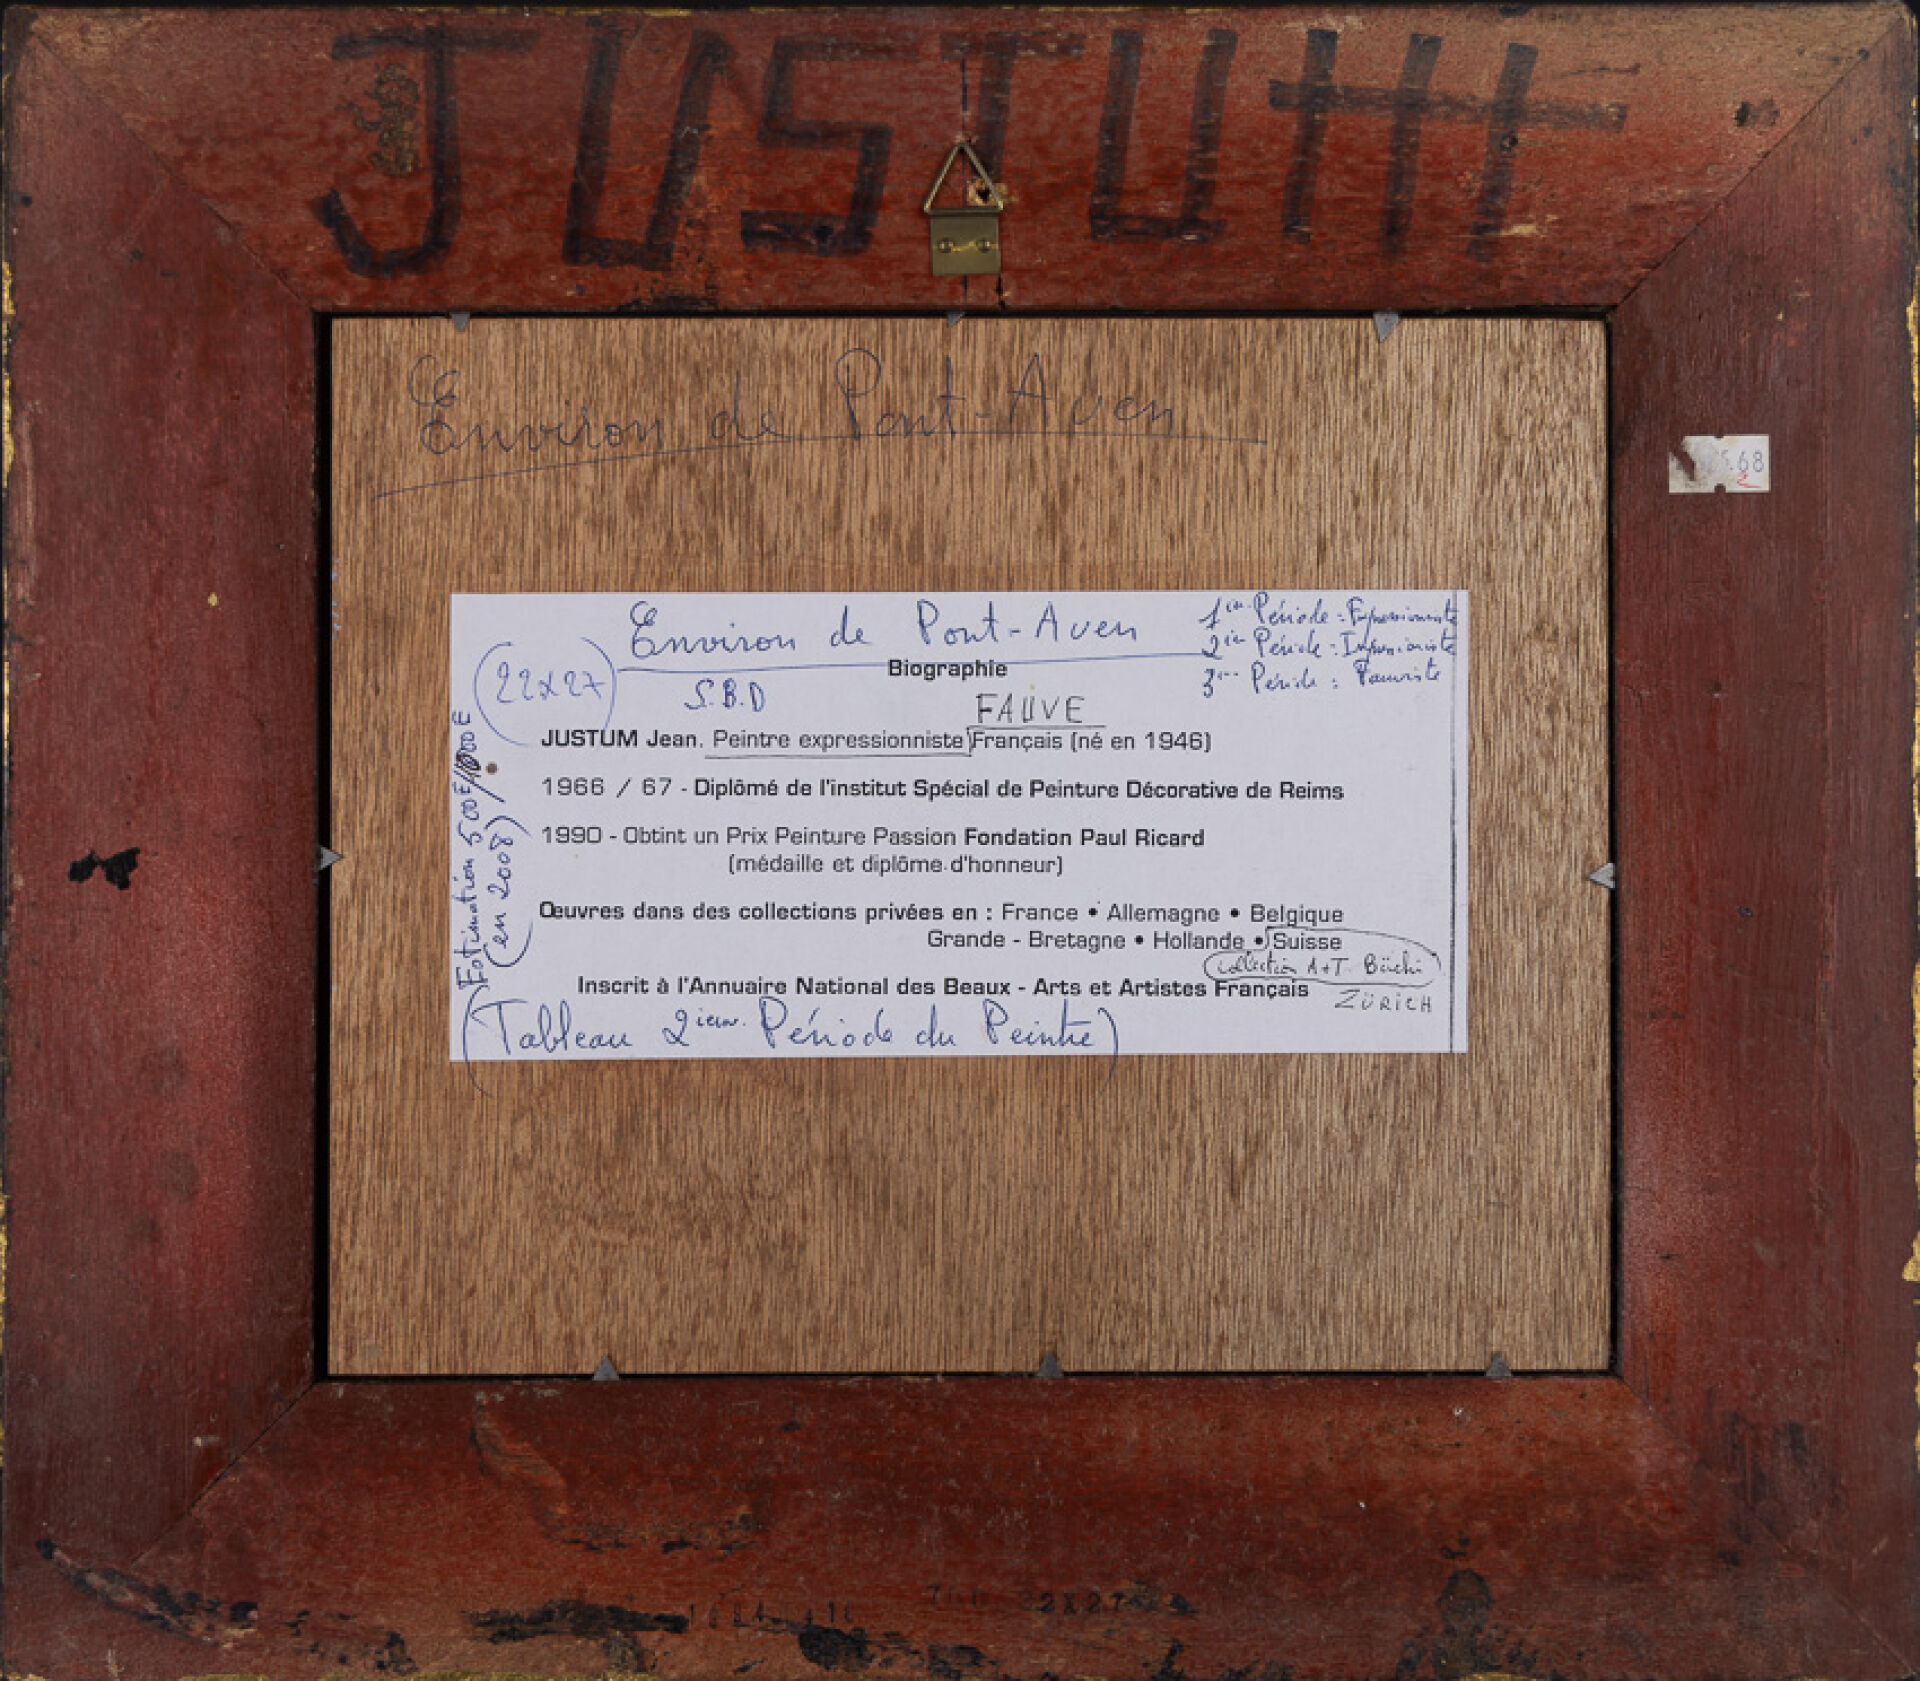 JUSTUM
Environ de Pont-Aven
.68
Environ de Pont-Aven
1ère Période : Expressionniste
2ième Période : Impressionniste
3ème Période : Fauviste
(22x27)
Biographie
S.B.D
FAUVE
JUSTUM Jean. Peintre expressionniste Français (né en 1946)
1966 / 67 - Diplômé de l'institut Spécial de Peinture Décorative de Reims
1990 - Obtint un Prix Peinture Passion Fondation Paul Ricard
(médaille et diplôme d'honneur)
Œuvres dans des collections privées en : France • Allemagne • Belgique
Grande - Bretagne • Hollande • Suisse
collection A+T Büchi
ZÜRICH
Inscrit à l'Annuaire National des Beaux - Arts et Artistes Français
(Tableau 2ième Période du Peintre)
Estimation 500E/1000E
(en 2008)
22X27